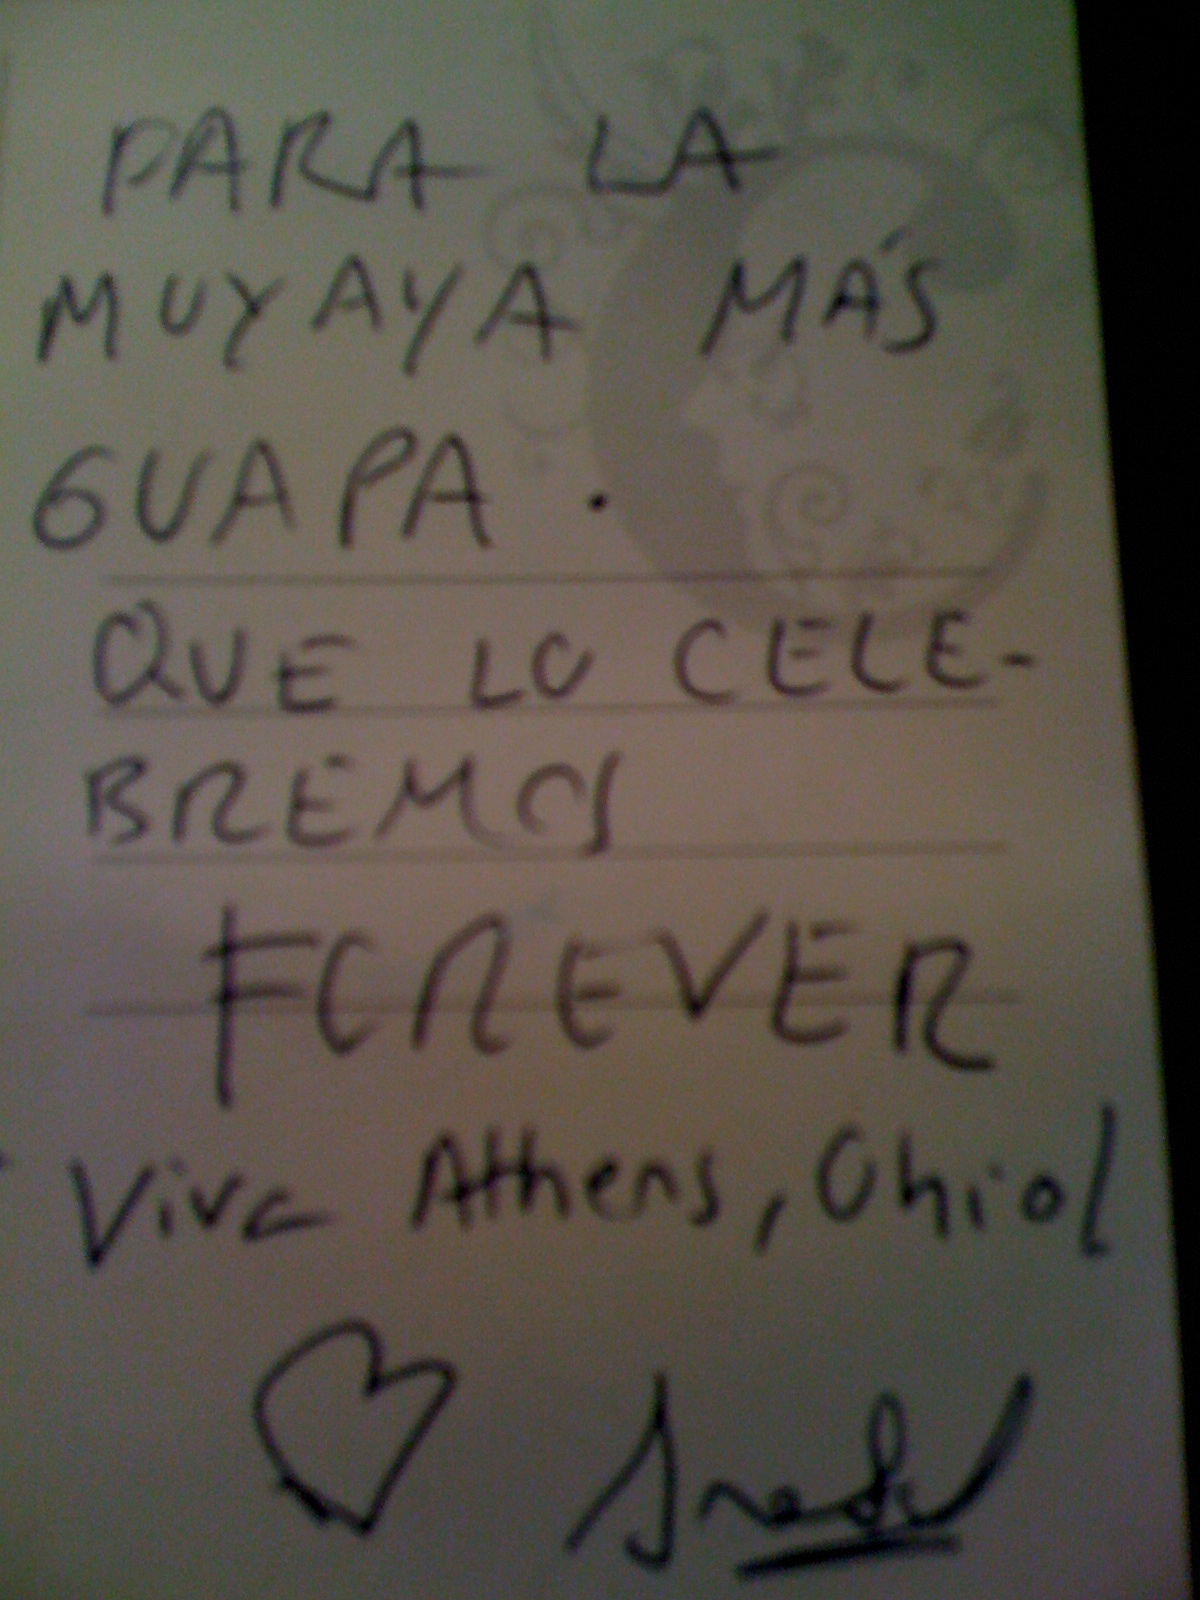 PARA LA
MUYAYA MÁS
GUAPA.
QUE LO CELE-
BREMOS
FOREVER
Viva Athens, Ohio!